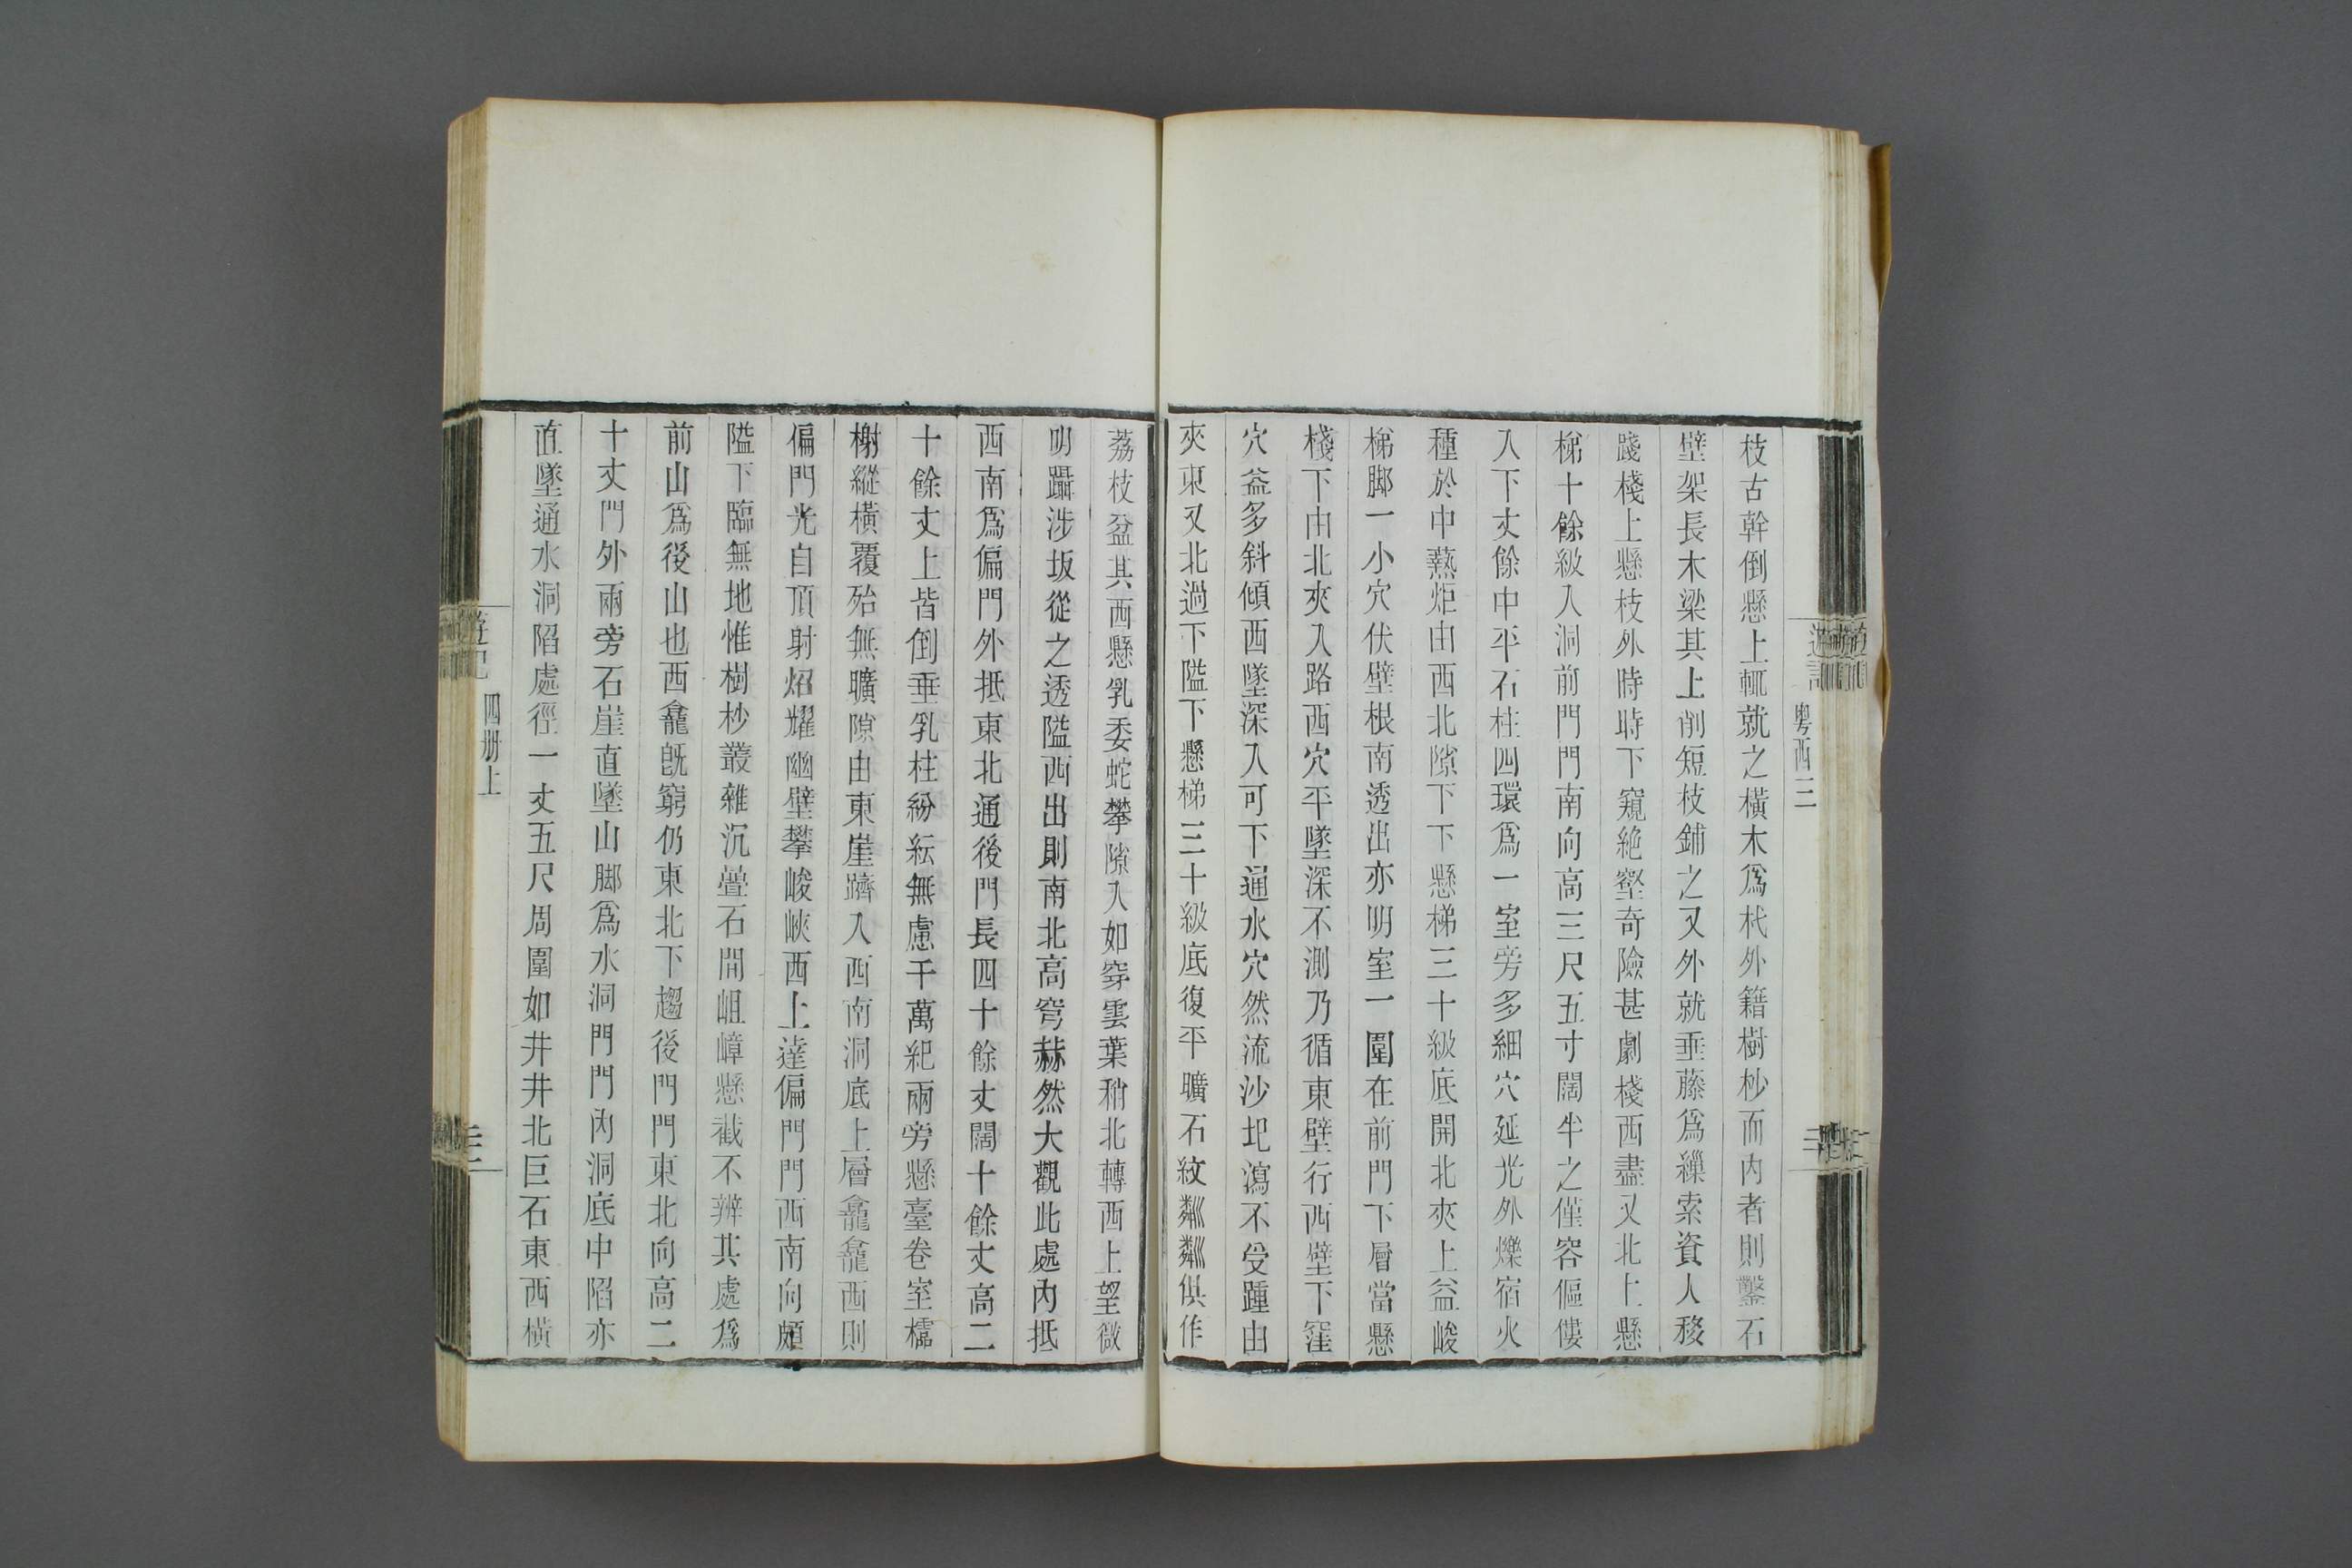 遊記
粵西三
枝古幹倒懸上輒就之橫木爲杙外籍樹杪而內者則鑿石
壁架長木梁其上削短枝鋪之又外就垂藤爲纙索資人移
踐棧上懸枝外時時下窺絶壑奇險甚劇棧西盡又北上懸
梯十餘級入洞前門門南向高三尺五寸闊半之僅容傴僂
入下丈餘中平石柱四環爲一室旁多細穴延光外爍宿火
種於中爇炬由西北隙下下懸梯三十級底開北夾上益峻
梯脚一小穴伏壁根南透出亦明室一圍在前門下層當懸
棧下由北夾入路西穴平墜深不測乃循東壁行西壁下窪
穴益多斜傾西墜深入可下通水穴然流沙圯瀉不受踵由
夾東又北過下隘下懸梯三十級底復平曠石紋粼粼俱作
荔枝盆其西懸乳委蛇攀隙入如穿雲葉稍北轉西上望微
明躡涉坂從之透隘西出則南北高穹赫然大觀此處內抵
西南爲偏門外抵東北通後門長四十餘丈闊十餘丈高二
十餘丈上皆倒垂乳柱紛紜無慮千萬紀兩旁懸臺卷室櫺
榭縱橫覆殆無曠隙由東崖躋入西南洞底上層龕龕西則
偏門光自頂射炤耀幽壁攀峻峽西上達偏門門西南向頗
隘下臨無地惟樹杪叢雜沉疊石開岨嶂懸截不辨其處爲
前山爲後山也西龕旣窮仍東北下趨後門門東北向高二
十丈門外兩旁石崖直墜山脚爲水洞門門內洞底中陷亦
直墜通水洞陷處徑一丈五尺周圍如井井北巨石東西橫
遊記
四册上